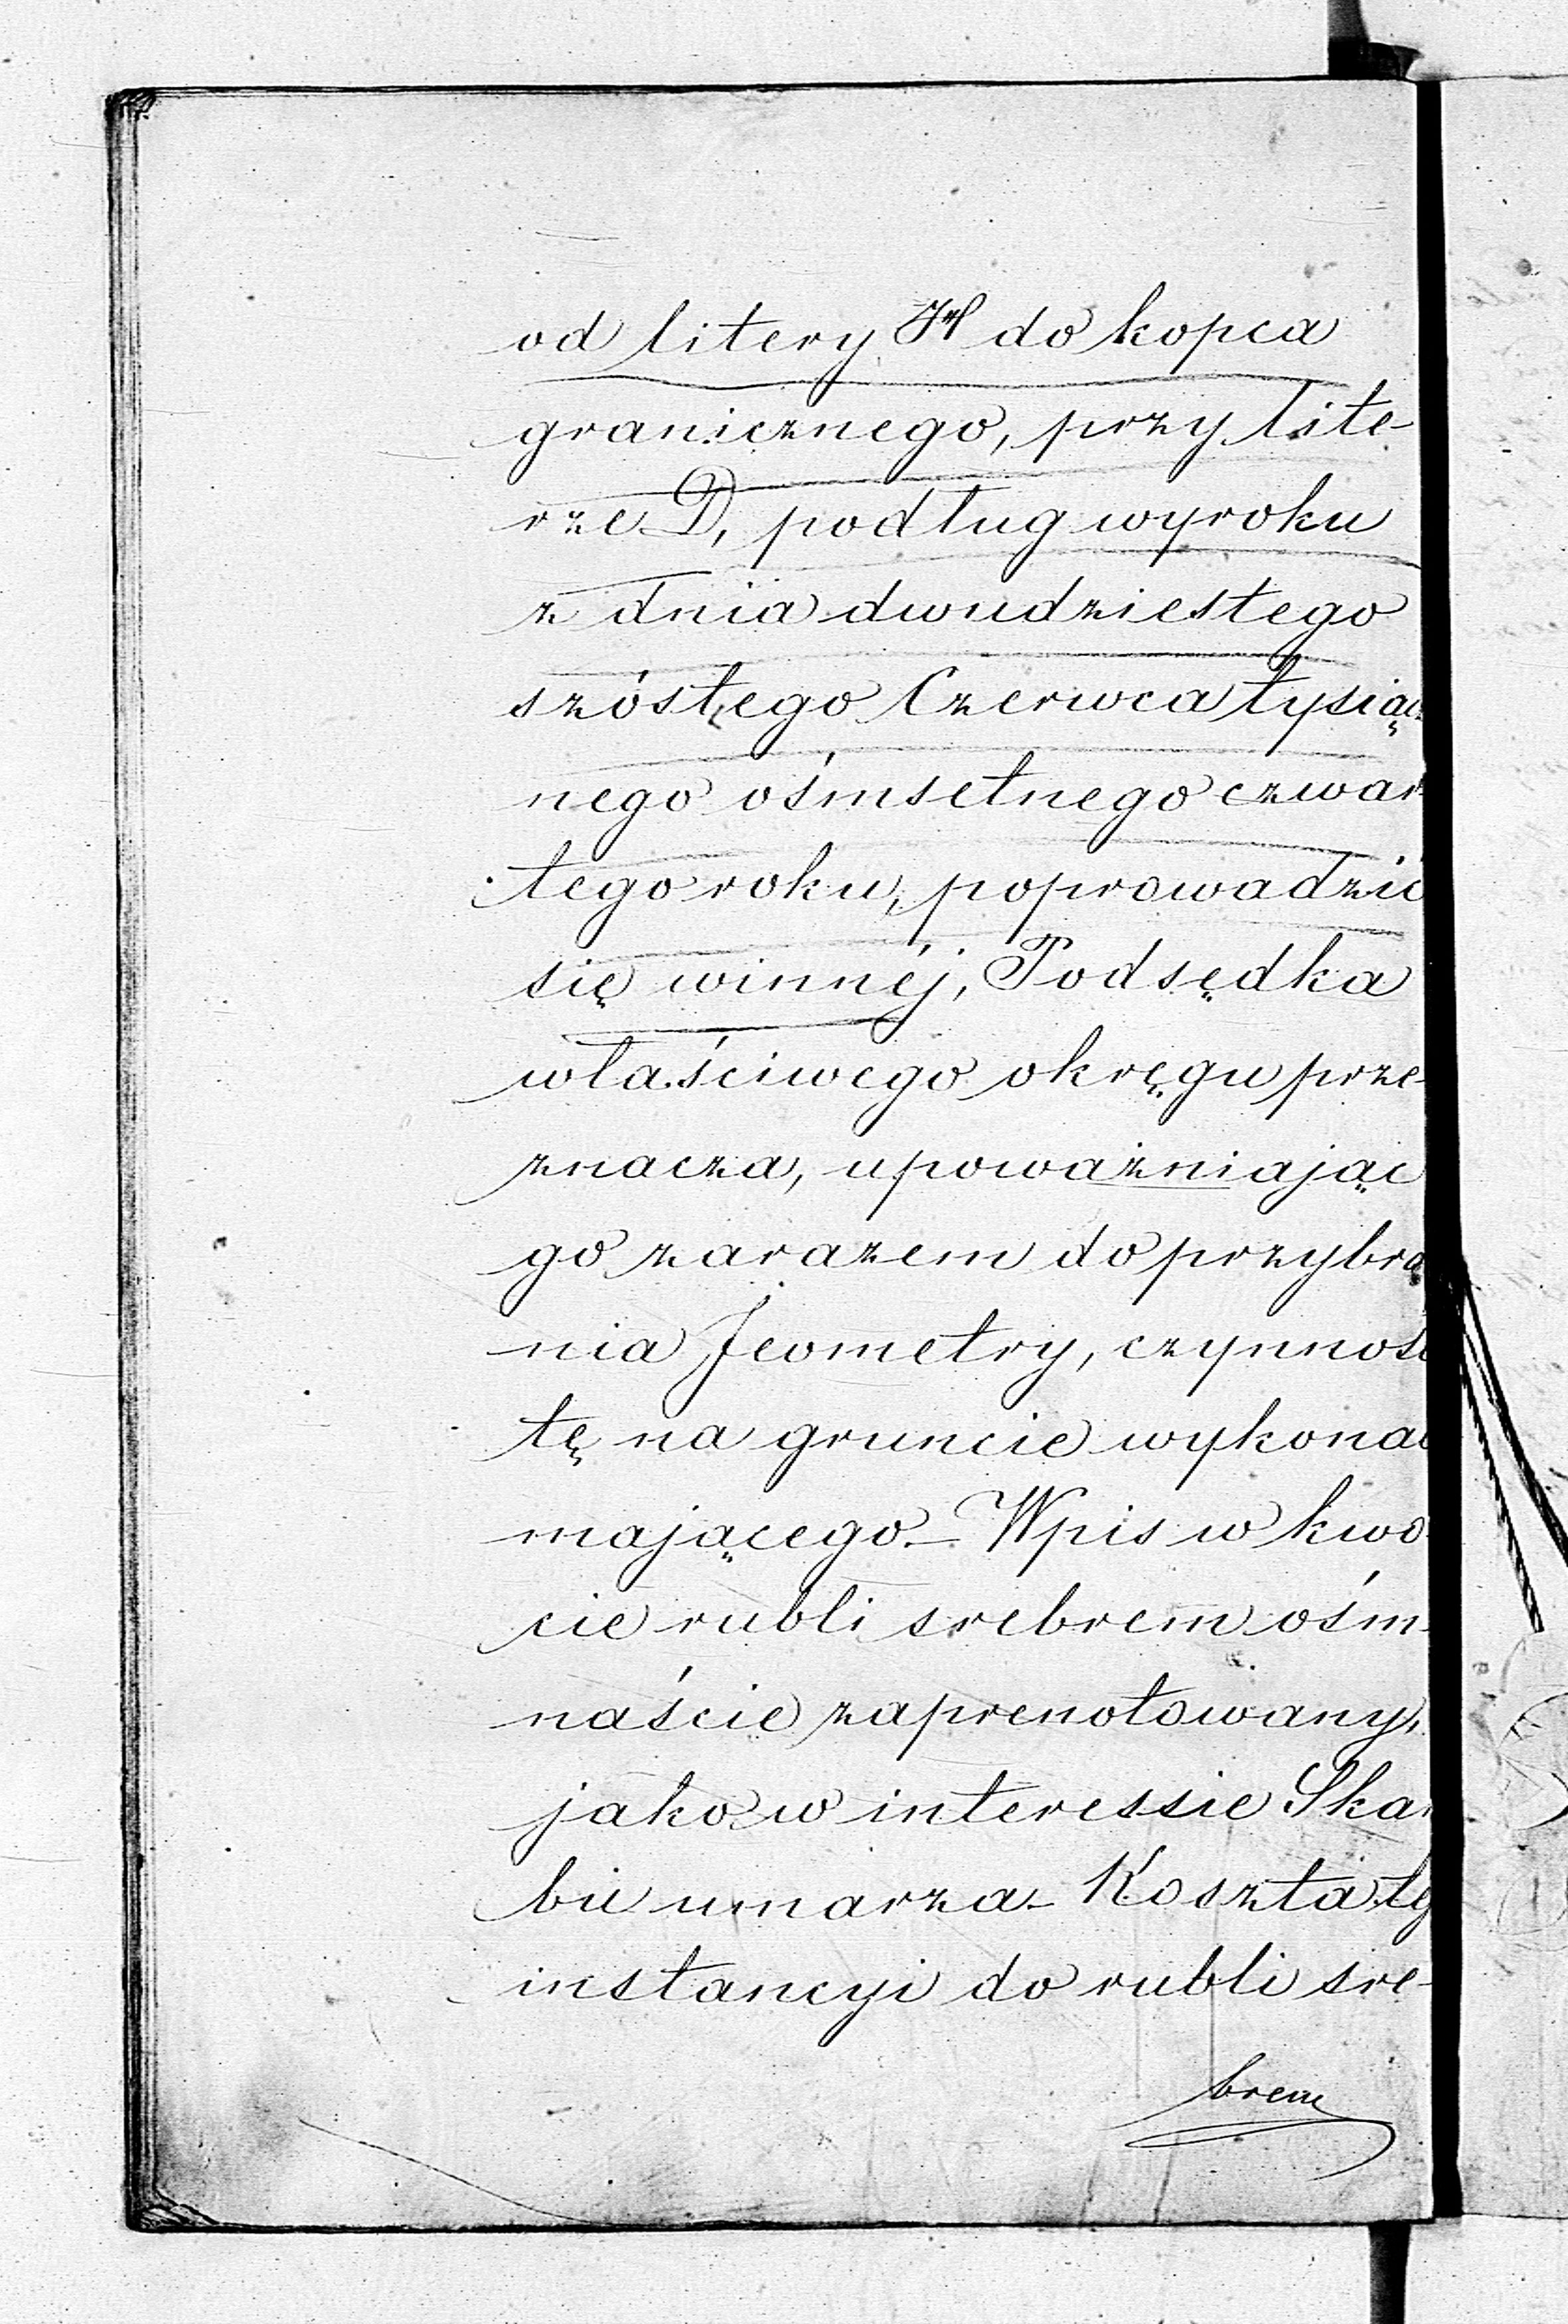 od litery H do kopca
granicznego, przy lite-
rze D, podług wyroku
z dnia dwudziestego
szóstego Czerwca tysiącz
nego ośmsetnego czwar
tego roku, poprowadzić
się winnéj, Podsędka
właściwego okręgu prze-
znacza, upoważniając
go zarazem do przybra
nia Jeometry, czynność
tę na gruncie wykonać
mającego – Wpis w kwo
cie rubli srebrem ośm-
naście zaprenotowany,
jako w interessie Skar
bu umarza – Koszta tej
instancyi do rubli sre-
brem